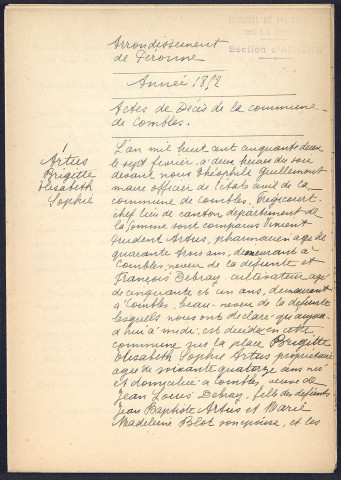 Arrondissement
de Péronne
Année 1852
Actes de Décès de la commune
de Combles.
Section d'Amiens
Artus
Brigitte
Elisabeth
Sophie
L'an mil huit cent cinquante deux
le sept février à deux heures du soir
devant nous Théophile Guillemont
maire officier de l'état civil de la
commune de Combles, Frégicourt
chef lieu de canton, département de
la Somme sont comparus Vincent
Prudent Artus, pharmacien agé de
quarante trois ans, demeurant à
Combles, neveu de la défunte et
François Debray, cultivateur agé
de cinquante et un ans, demeurant
à Combles, beau-neveu de la défunte
lesquels nous ont déclaré qu'aujour-
d'hui à midi, est décédée en cette
commune sur la place Brigitte
Elisabeth Sophie Artus propriétaire
agée de soixante quatorze ans née
et domiciliée à Combles, veuve de
Jean Louis Debray, fille des défunts
Jean Baptiste Artus et Marie
Madeleine Blot son épouse, et les